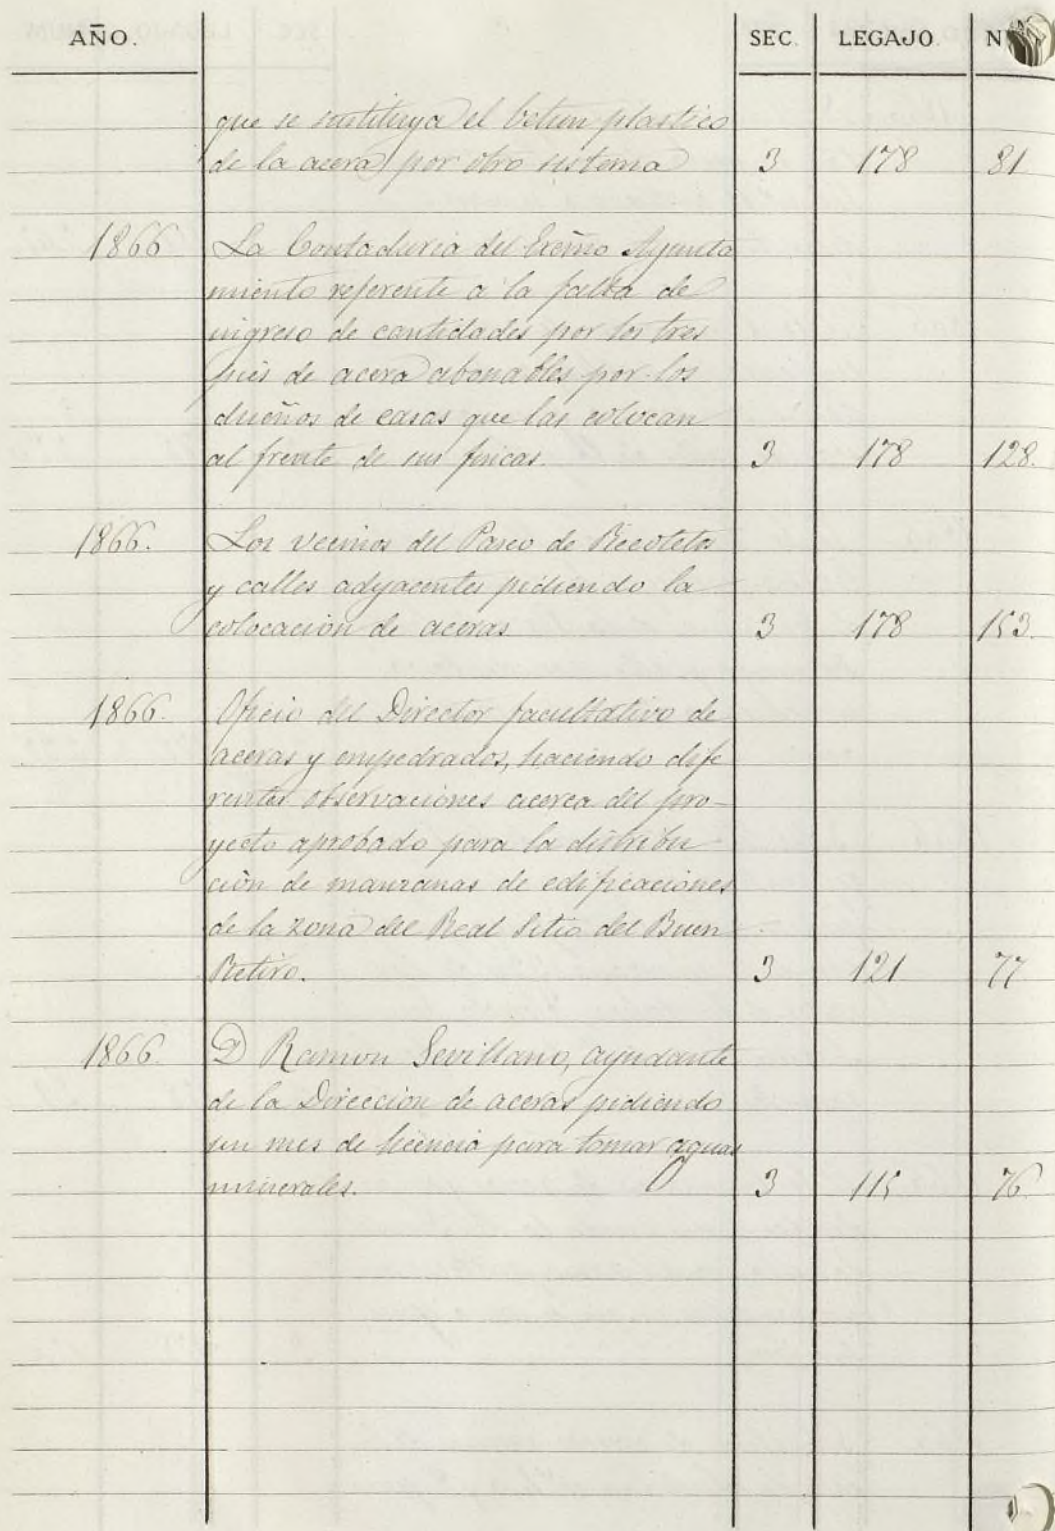 AÑO. SEC. LEGAJO. N
que se sustituya el betun plastico
de la acera por otro sistema 3 178 81
1866 La Contaduria del Excmo Ayunta
miento referente a la falta de
ingreso de cantidades por los tres
piés de acera abonables por los
dueños de casas que las colocan
al frente de sus fincas. 3 178 128.
1866. Los vecinos del Paseo de Recoletos
y calles adyacentes pidiendo la
colocación de aceras 3 178 153.
1866. Oficio del Director facultativo de
aceras y empedrados, haciendo dife
rentes observaciones acerca del pro-
yecto aprobado para la distribu
ción de manzanas de edificaciones
de la zona del Real Sitio del Buen
Retiro. 3 121 77
1866. D Ramon Sevillano, ayudante
de la Dirección de aceras pidiendo
un mes de licencia para tomar aguas
minerales. 3 115 76